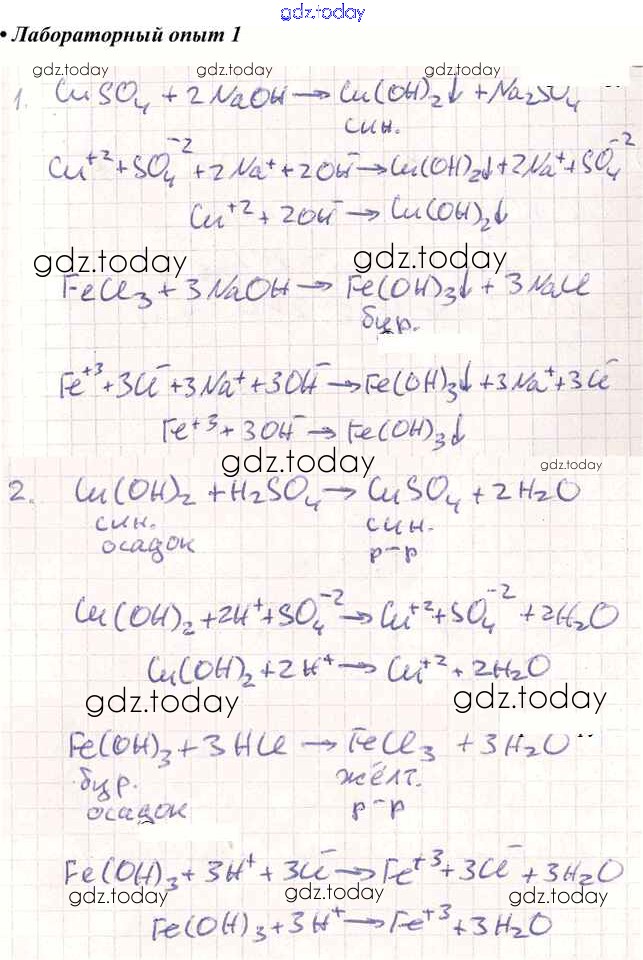 gdz.today
• Лабораторный опыт 1
gdz.today gdz.today gdz.today
1. CuSO₄ + 2NaOH → Cu(OH)₂↓ + Na₂SO₄
син.
Cu⁺² + SO₄⁻² + 2Na⁺ + 2OH⁻ → Cu(OH)₂↓ + 2Na⁺ + SO₄⁻²
Cu⁺² + 2OH⁻ → Cu(OH)₂↓
gdz.today gdz.today
FeCl₃ + 3NaOH → Fe(OH)₃↓ + 3NaCl
бур.
Fe⁺³ + 3Cl⁻ + 3Na⁺ + 3OH⁻ → Fe(OH)₃↓ + 3Na⁺ + 3Cl⁻
Fe⁺³ + 3OH⁻ → Fe(OH)₃↓
gdz.today gdz.today
2. Cu(OH)₂ + H₂SO₄ → CuSO₄ + 2H₂O
син. син.
осадок р-р
Cu(OH)₂ + 2H⁺ + SO₄⁻² → Cu⁺² + SO₄⁻² + 2H₂O
Cu(OH)₂ + 2H⁺ → Cu⁺² + 2H₂O
gdz.today gdz.today
Fe(OH)₃ + 3HCl → FeCl₃ + 3H₂O
бур. жёлт.
осадок р-р
Fe(OH)₃ + 3H⁺ + 3Cl⁻ → Fe⁺³ + 3Cl⁻ + 3H₂O
gdz.today gdz.today gdz.today
Fe(OH)₃ + 3H⁺ → Fe⁺³ + 3H₂O